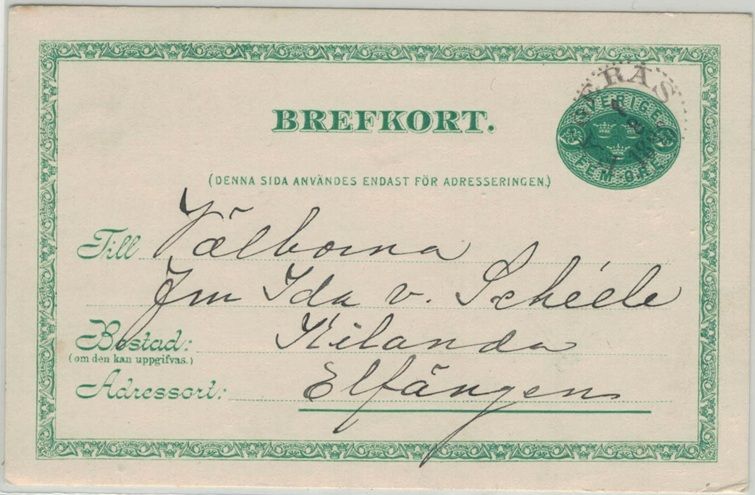 BREFKORT.
SVERIGE
FEM ÖRE
(DENNA SIDA ANVÄNDES ENDAST FÖR ADRESSERINGEN.)
Till Välborna
Frn Ida v. Schéele
Bostad: Kilanda
(om den kan uppgifvas.)
Adressort: Elfängen